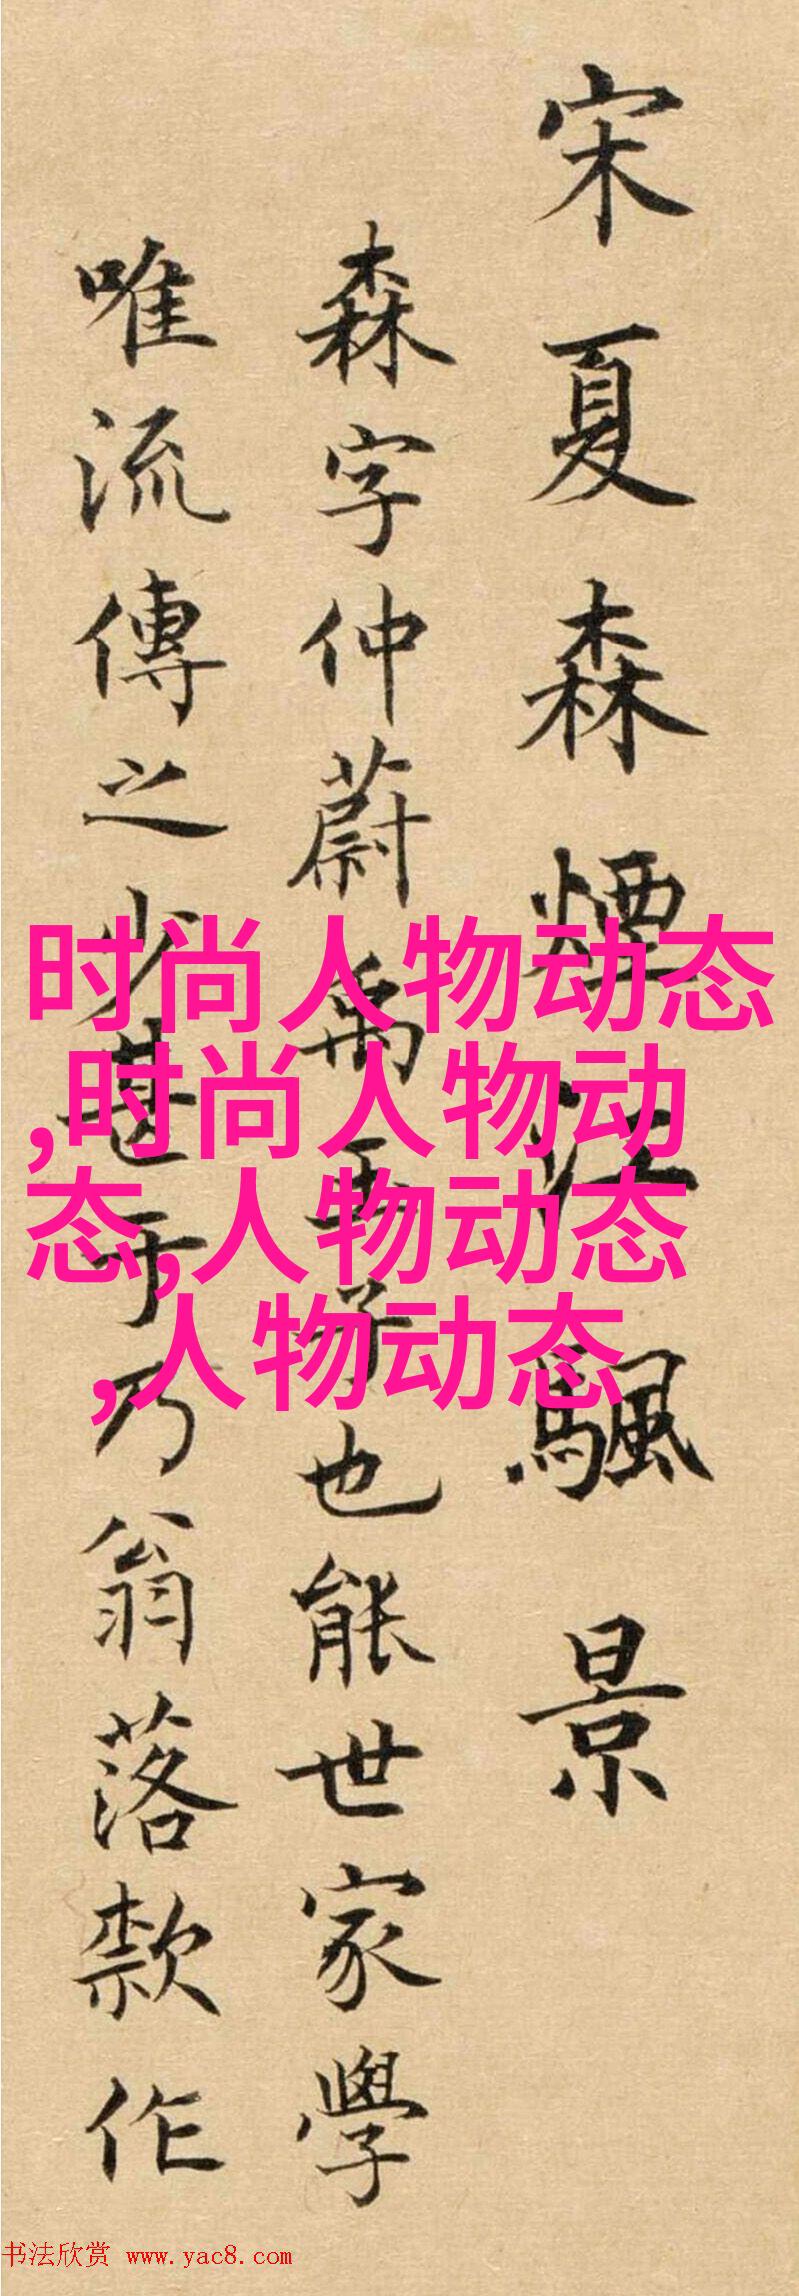 宋夏森煙江颿景
森字仲蔚禹玉子也能世家學
唯流傳之少甚于乃翁落款作
时尚人物动态
,时尚人物动
态,人物动态
,人物动态
书法欣赏 www.yac8.com